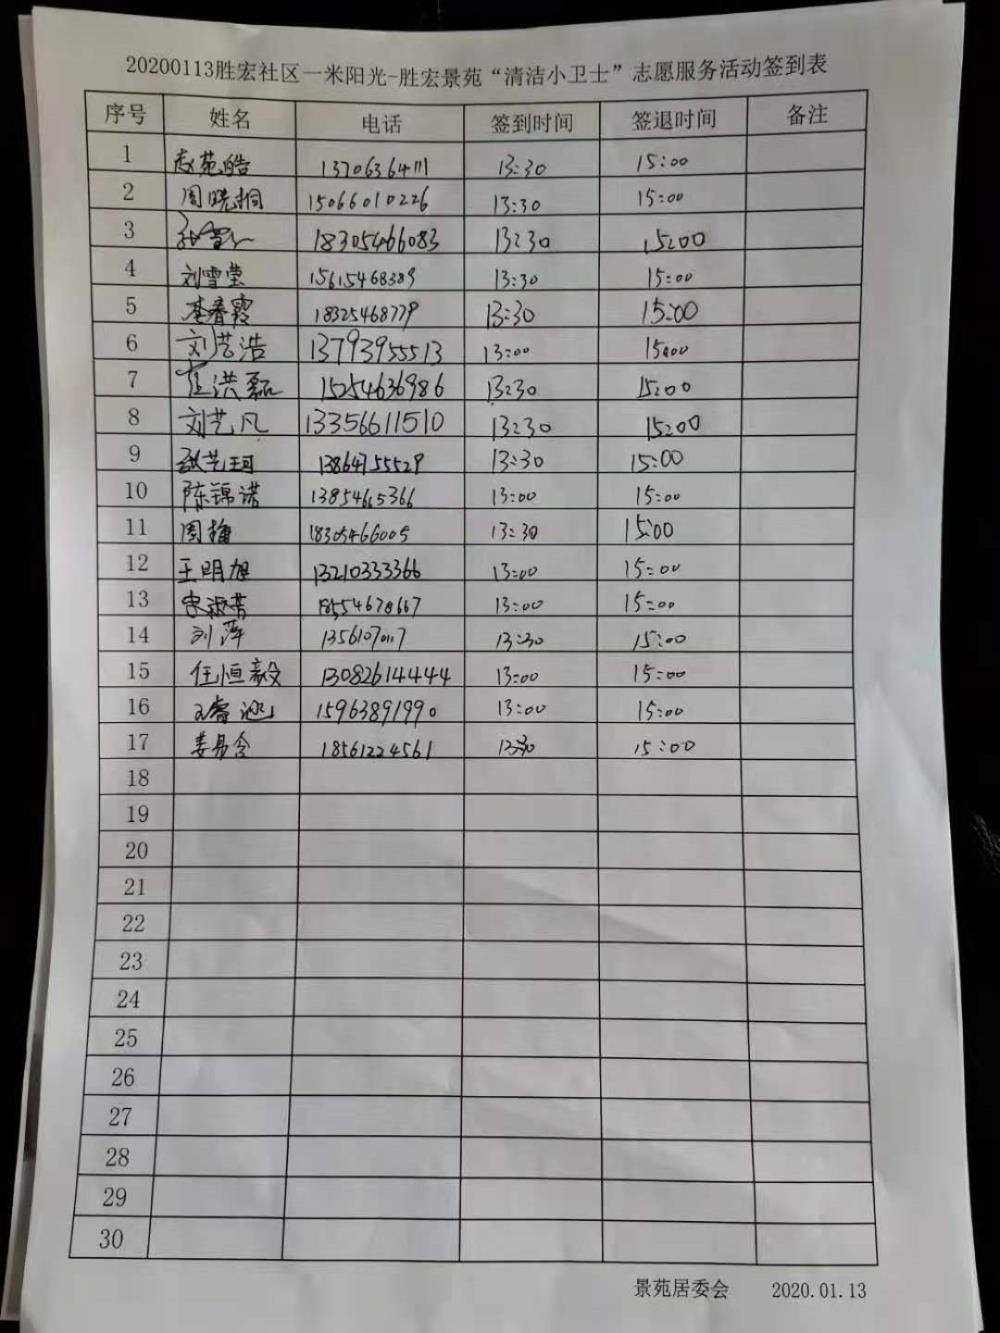 20200113胜宏社区一米阳光-胜宏景苑“清洁小卫士”志愿服务活动签到表
序号 姓名 电话 签到时间 签退时间 备注
1 赵苑皓 13706364111 13:30 15:00
2 周晓桐 15066010226 13:30 15:00
3 18305466083 13:30 15:00
4 刘雪莹 15615468389 13:30 15:00
5 李春霞 18325468779 13:30 15:00
6 刘艺浩 13793955513 13:00 15:00
7 洪磊 15254636986 13:30 15:00
8 刘艺凡 13356611510 13:30 15:00
9 张艺珂 13864755529 13:30 15:00
10 陈锦诺 13854665366 13:00 15:00
11 周梅 18305466005 13:30 15:00
12 王明旭 13210333366 13:00 15:00
13 宋淑芳 18554678667 13:00 15:00
14 刘萍 13:30 15:00
15 任恒毅 13082614444 13:00 15:00
16 王睿涵 15963891990 13:00 15:00
17 姜易含 18561224561 13:30 15:00
18
19
20
21
22
23
24
25
26
27
28
29
30
景苑居委会 2020.01.13